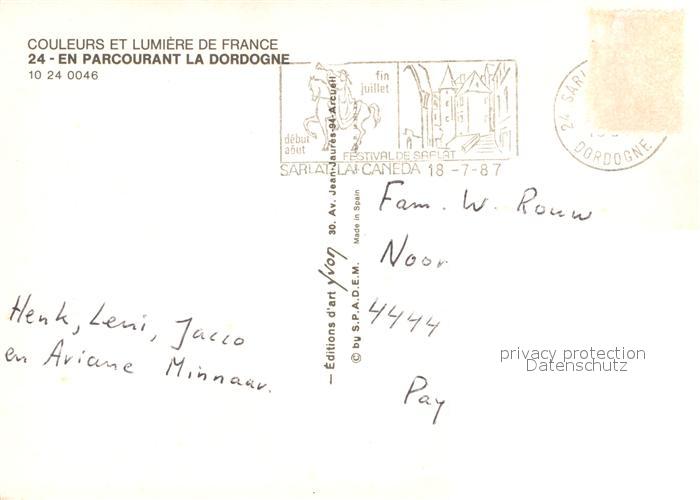 COULEURS ET LUMIÈRE DE FRANCE
24 - EN PARCOURANT LA DORDOGNE
10 24 0046
fin
juillet
début
août
FESTIVAL DE SARLAT
SARLAT LA CANEDA 18 -7-87
24 SARL
DORDOGNE
— Éditions d'art Yvon 30. Av. Jean-Jaurès-94-Arcueil
© by S.P.A.D.E.M. Made in Spain
Fam. W. Rouw
Noor
4444
Pay
Henk, Leni, Jacco
en Ariane Minnaar.
privacy protection
Datenschutz